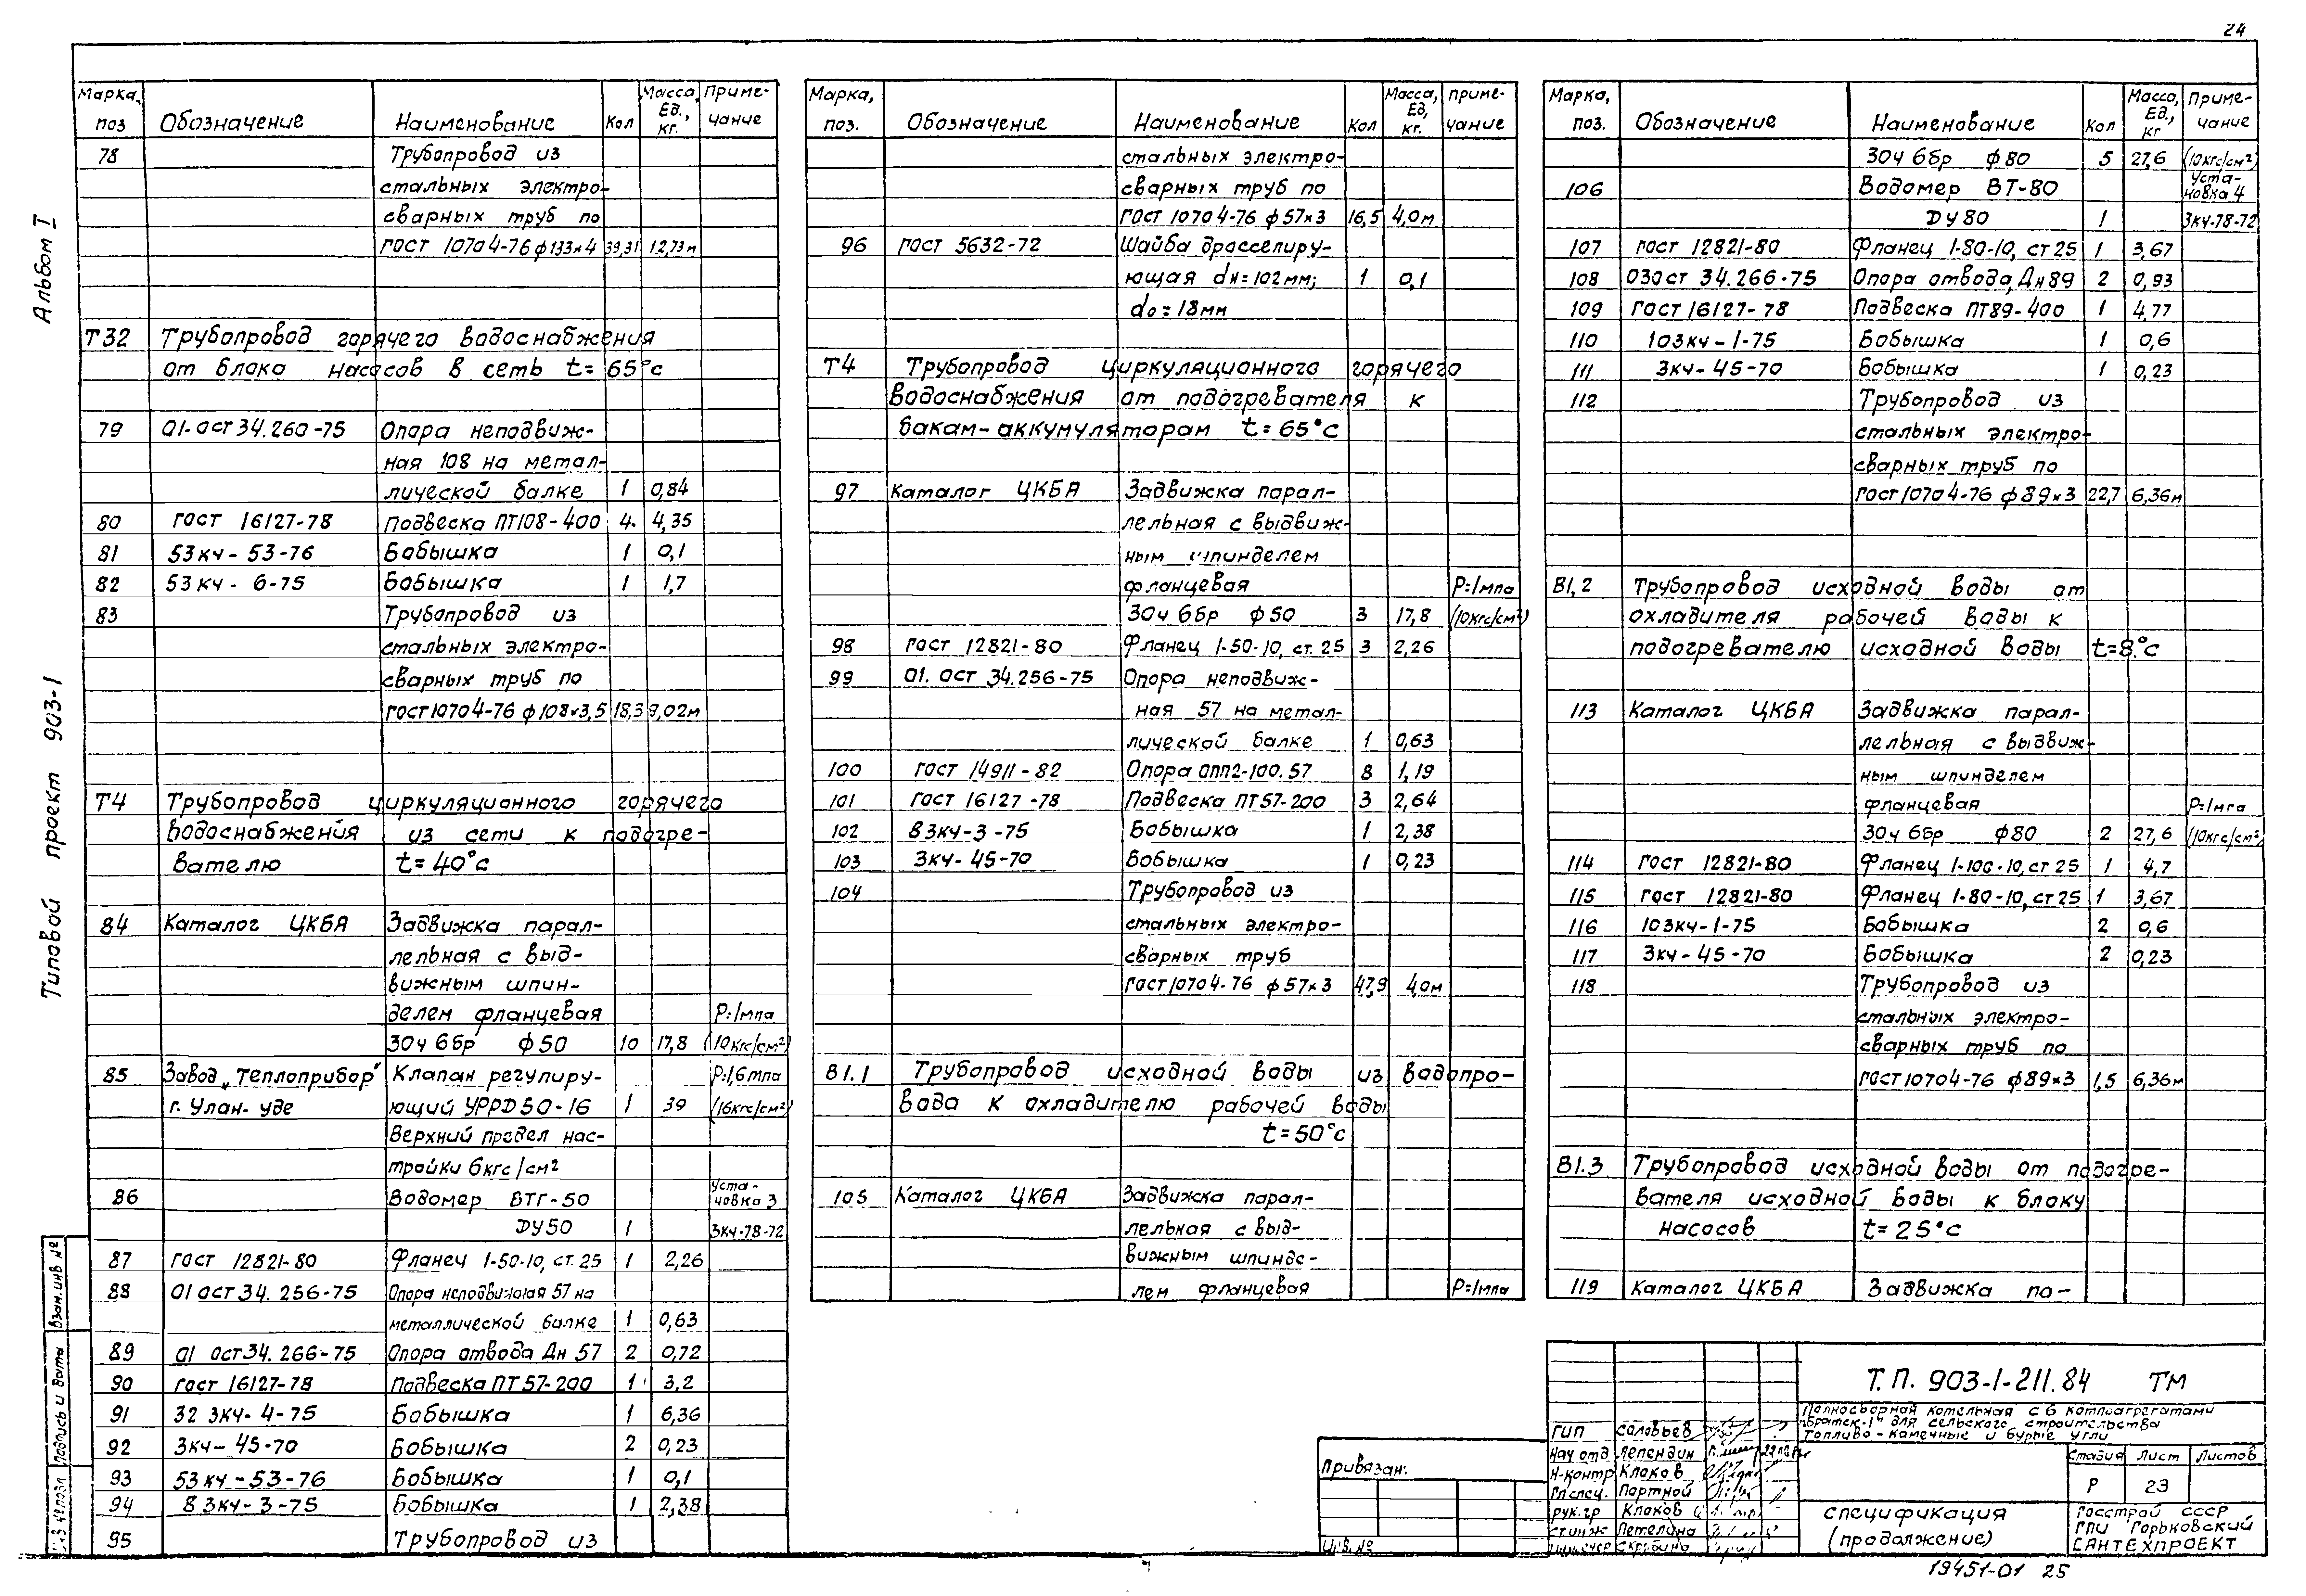 24
Альбом I
Типовой проект 903-1
Марка, поз Обозначение Наименование Кол Масса, Ед., кг. Приме-чание
78 Трубопровод из
стальных электро-
сварных труб по
ГОСТ 10704-76 ф133х4 39,31 12,73м
Т32 Трубопровод горячего водоснабжения
от блока насосов в сеть t= 65°с
79 01-ост 34.260-75 Опора неподвиж-
ная 108 на метал-
лической балке 1 0,84
80 ГОСТ 16127-78 Подвеска ПТ108-400 4. 4,35
81 53кч-53-76 Бобышка 1 0,1
82 53кч-6-75 Бобышка 1 1,7
83 Трубопровод из
стальных электро-
сварных труб по
ГОСТ 10704-76 ф108х3,5 18,3 9,02м
Т4 Трубопровод циркуляционного горячего
водоснабжения из сети к подогре-
вателю t= 40°с
84 Каталог ЦКБА Задвижка парал-
лельная с выд-
вижным шпин-
делем фланцевая Р=1мпа
30ч 6бр ф50 10 17,8 (10кгс/см²)
85 Завод „Теплоприбор" Клапан регулиру- Р=1,6мпа
г. Улан-уде ющий УРРД 50-16 1 39 (16кгс/см²)
Верхний предел нас-
тройки 6кгс/см²
86 Водомер ВТГ-50 Уста-новка 3
ДУ50 1 3кч-78-72
87 ГОСТ 12821-80 Фланец 1-50-10, ст. 25 1 2,26
88 01 ост 34.256-75 Опора неподвижная 57 на
металлической балке 1 0,63
89 01 ост 34.266-75 Опора отвода Дн 57 2 0,72
90 гост 16127-78 Подвеска ПТ 57-200 1 3,2
91 32 3кч-4-75 Бобышка 1 6,36
92 3кч-45-70 Бобышка 2 0,23
93 53кч-53-76 Бобышка 1 0,1
94 83кч-3-75 Бобышка 1 2,38
95 Трубопровод из
Марка, поз. Обозначение Наименование Кол Масса, Ед, кг. Приме-чание
стальных электро-
сварных труб по
ГОСТ 10704-76 ф57х3 16,5 4,0м
96 ГОСТ 5632-72 Шайба дросселиру-
ющая dн=102мм; 1 0,1
do=18мм
Т4 Трубопровод циркуляционного горячего
водоснабжения от подогревателя к
бакам-аккумуляторам t= 65°с
97 Каталог ЦКБА Задвижка парал-
лельная с выдвиж-
ным шпинделем
фланцевая Р=1мпа
30ч 6бр ф50 3 17,8 (10кгс/см²)
98 ГОСТ 12821-80 Фланец 1-50-10, ст. 25 3 2,26
99 01. ост 34.256-75 Опора неподвиж-
ная 57 на метал-
лической балке 1 0,63
100 ГОСТ 14911-82 Опора ОПП2-100.57 8 1,19
101 ГОСТ 16127-78 Подвеска ПТ57-200 3 2,64
102 83кч-3-75 Бобышка 1 2,38
103 3кч-45-70 Бобышка 1 0,23
104 Трубопровод из
стальных электро-
сварных труб
ГОСТ 10704-76 ф57х3 47,9 4,0м
В1.1 Трубопровод исходной воды из водопро-
вода к охладителю рабочей воды
t=50°с
105 Каталог ЦКБА Задвижка парал-
лельная с выд-
вижным шпинде-
лем фланцевая Р=1мпа
Марка, поз. Обозначение Наименование Кол Масса, Ед., кг Приме-чание
30ч 6бр ф80 5 27,6 (10кгс/см²)
106 Водомер ВТ-80 Уста-новка 4
ДУ80 1 3кч-78-72
107 ГОСТ 12821-80 Фланец 1-80-10, ст 25 1 3,67
108 03ост 34.266-75 Опора отвода, Дн89 2 0,93
109 ГОСТ 16127-78 Подвеска ПТ89-400 1 4,77
110 103кч-1-75 Бобышка 1 0,6
111 3кч-45-70 Бобышка 1 0,23
112 Трубопровод из
стальных электро-
сварных труб по
ГОСТ 10704-76 ф89х3 22,7 6,36м
В1,2 Трубопровод исходной воды от
охладителя рабочей воды к
подогревателю исходной воды t=8°с
113 Каталог ЦКБА Задвижка парал-
лельная с выдвиж-
ным шпинделем
фланцевая Р=1мпа
30ч 6бр ф80 2 27,6 (10кгс/см²)
114 ГОСТ 12821-80 Фланец 1-100-10, ст 25 1 4,7
115 ГОСТ 12821-80 Фланец 1-80-10, ст 25 1 3,67
116 103кч-1-75 Бобышка 2 0,6
117 3кч-45-70 Бобышка 2 0,23
118 Трубопровод из
стальных электро-
сварных труб по
ГОСТ 10704-76 ф89х3 1,5 6,36м
В1.3 Трубопровод исходной воды от подогре-
вателя исходной воды к блоку
насосов t= 25°с
119 Каталог ЦКБА Задвижка па-
Т.П. 903-1-211.84 ТМ
Полносборная котельная с 6 котлоагрегатами
"Братск-1" для сельского строительства
Топливо-каменные и бурые угли
Стадия Лист Листов
Р 23
Спецификация
(продолжение)
Госстрой СССР
ГПИ Горьковский
САНТЕХПРОЕКТ
ГИП Соловьев
Нач отд Лепендин
Н-контр Клоков
Гл спец. Портной
рук.гр Клоков
ст инж Петелина
инженер
Привязан:
Инв. №
Взам. инв №
Подпись и дата
19451-01 25